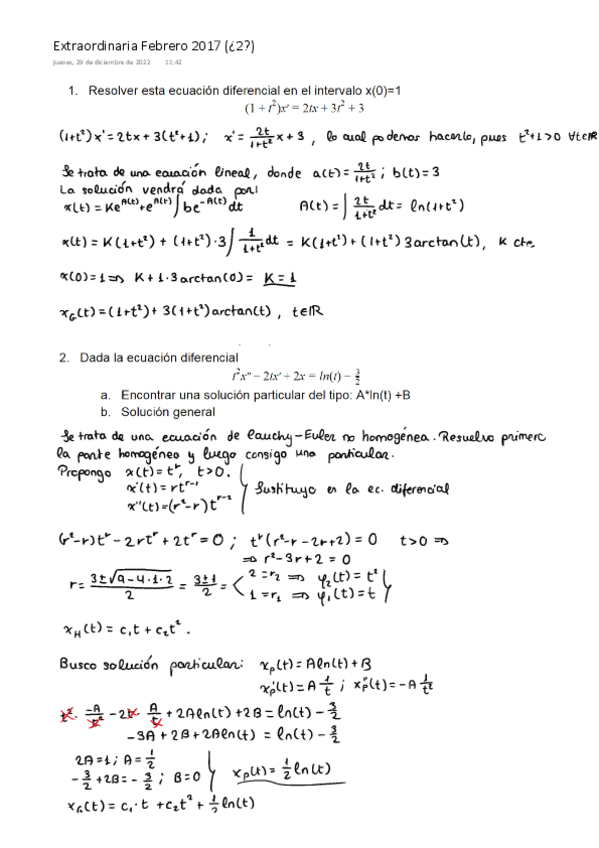 Extraordinaria Febrero 2017 (¿2?)
jueves, 29 de diciembre de 2022 11:42
1. Resolver esta ecuación diferencial en el intervalo x(0)=1
(1 + t²)x' = 2tx + 3t² + 3
(1+t²)x' = 2tx + 3(t²+1); x' = 2t/(1+t²) x + 3, lo cual podemos hacerlo, pues t²+1>0 ∀t∈ℝ
Se trata de una ecuación lineal, donde a(t) = 2t/(1+t²); b(t)=3
La solución vendrá dada por:
x(t) = Ke^{A(t)} + e^{A(t)} ∫ be^{-A(t)} dt A(t) = ∫ 2t/(1+t²) dt = ln(1+t²)
x(t) = K(1+t²) + (1+t²)·3 ∫ 1/(1+t²) dt = K(1+t²) + (1+t²) 3arctan(t), K cte.
x(0)=1 ⇒ K + 1·3arctan(0) = K = 1
x_G(t) = (1+t²) + 3(1+t²)arctan(t), t∈ℝ
2. Dada la ecuación diferencial
t²x'' − 2tx' + 2x = ln(t) − 3/2
a. Encontrar una solución particular del tipo: A*ln(t) +B
b. Solución general
Se trata de una ecuación de Cauchy-Euler no homogénea. Resuelvo primero
la parte homogénea y luego consigo una particular.
Propongo x(t) = t^r, t>0.
x'(t) = rt^{r-1}
x''(t) = (r²-r)t^{r-2} } Sustituyo en la ec. diferencial
(r²-r)t^r − 2rt^r + 2t^r = 0; t^r(r²-r-2r+2) = 0 t>0 ⇒
⇒ r²-3r+2 = 0
r = (3±√(9-4·1·2))/2 = (3±1)/2 = < 2=r₂ ⇒ φ₂(t) = t²
1=r₁ ⇒ φ₁(t) = t }
x_H(t) = c₁t + c₂t².
Busco solución particular: x_p(t) = Aln(t) + B
x_p'(t) = A 1/t; x_p''(t) = −A 1/t²
t² · −A/t² − 2t · A/t + 2Aln(t) + 2B = ln(t) − 3/2
−3A + 2B + 2Aln(t) = ln(t) − 3/2
2A = 1; A = 1/2
−3/2 + 2B = −3/2; B=0 } x_p(t) = 1/2 ln(t)
x_G(t) = c₁·t + c₂t² + 1/2 ln(t)